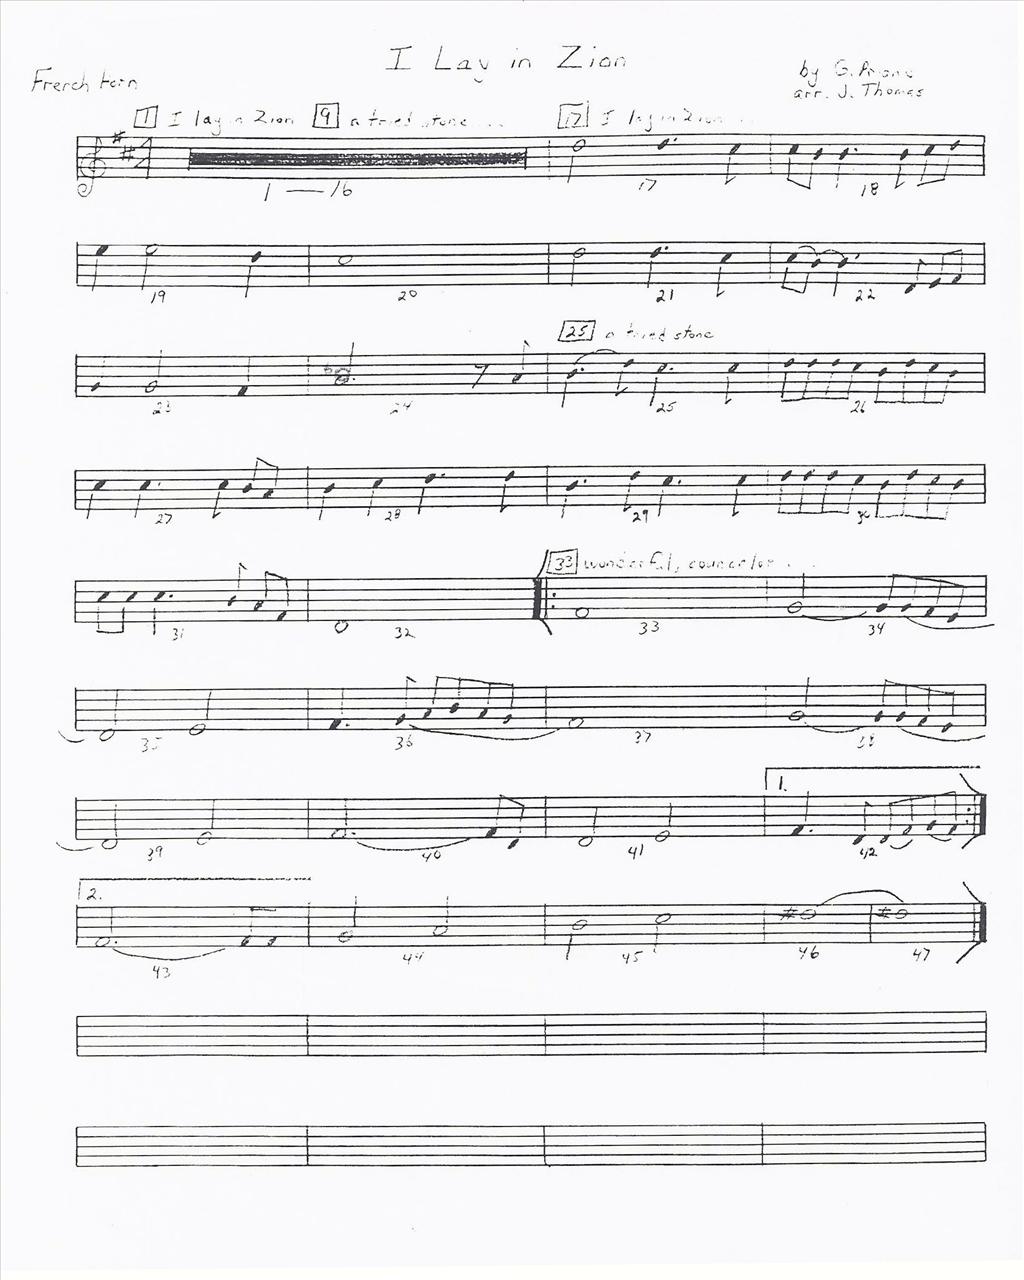 I Lay in Zion
French Horn
by G.
arr. J. Thomas
1 I lay in Zion 9 a tried stone... 17 I lay in Zion...
1 — 16 17 18
19 20 21 22
25 a tried stone
23 24 25 26
27 28 29 30
33 wonderful, counselor...
31 32 33 34
35 36 37 38
1.
39 40 41 42
2.
43 44 45 46 47